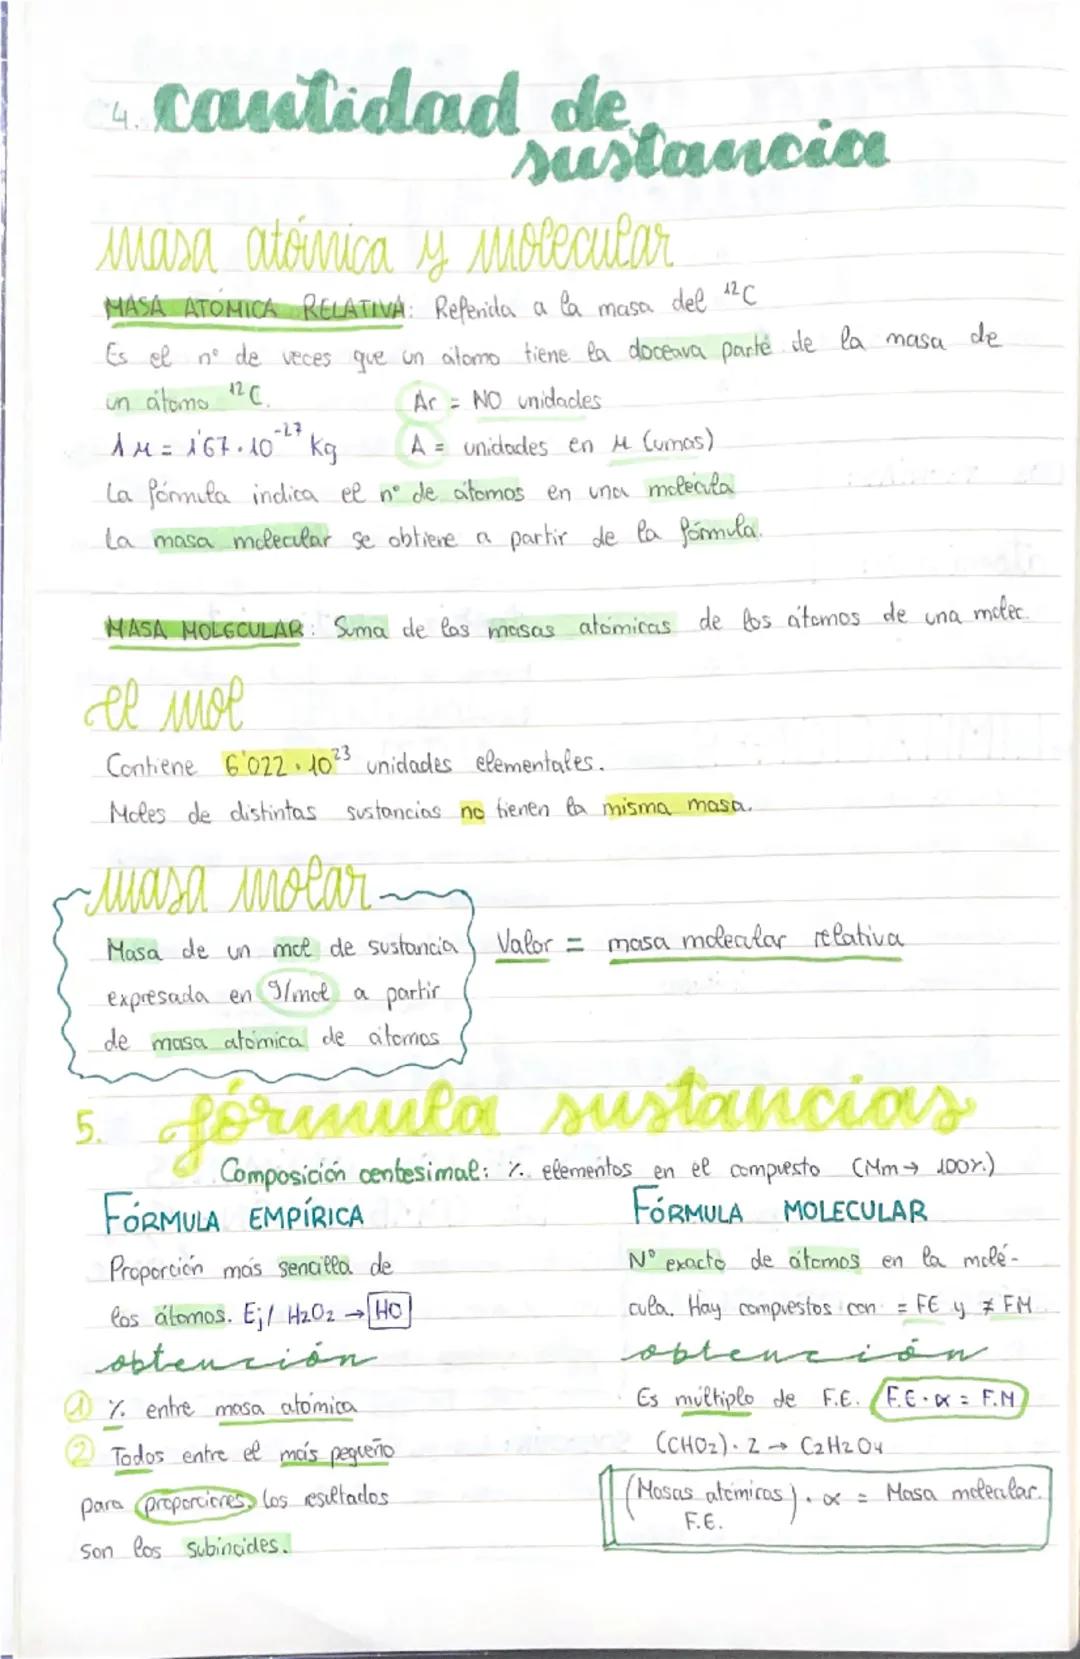 4. cantidad de
sustancia
masa atómica y molecular
MASA ATÓMICA RELATIVA: Referida a la masa del ¹²C
Es el nº de veces que un átomo tiene la doceava parte de la masa de
un átomo ¹²C. Ar = NO unidades
1 μ = 1'67·10⁻²⁷ kg A = unidades en μ (umas)
La fórmula indica el nº de átomos en una molécula
La masa molecular se obtiene a partir de la fórmula.
MASA MOLECULAR: Suma de las masas atómicas de los átomos de una molec.
el mol
Contiene 6'022·10²³ unidades elementales.
Moles de distintas sustancias no tienen la misma masa.
masa molar
Masa de un mol de sustancia
expresada en g/mol a partir
de masa atómica de átomos
Valor = masa molecular relativa
5. fórmula sustancias
Composición centesimal: % elementos en el compuesto (Mm → 100%)
FÓRMULA EMPÍRICA
Proporción más sencilla de
los átomos. Ej/ H2O2 → HO
obtención
① % entre masa atómica
② Todos entre el más pequeño
para proporciones, los resultados
son los subíncides.
FÓRMULA MOLECULAR
Nº exacto de átomos en la molé-
cula. Hay compuestos con = FE y ≠ FM
obtención
Es múltiplo de F.E. F.E·α = F.M
(CHO2)·2 → C2H2O4
(Masas atómicas F.E.) · α = Masa molecular.